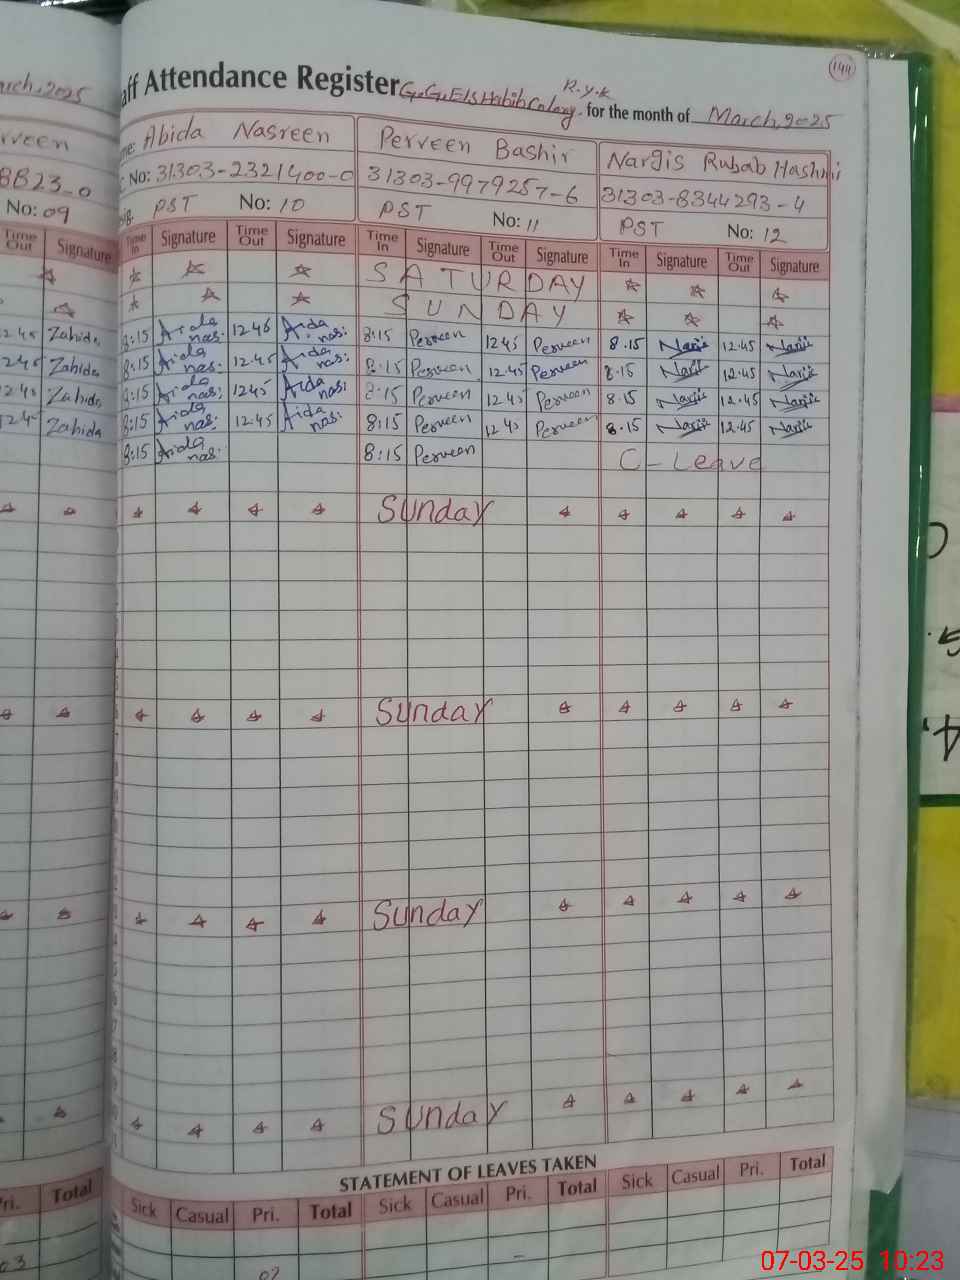 144
aff Attendance Register G.G.E/S Habib Colony R.y.K for the month of March, 2025
arch, 2025
me: Abida Nasreen Perveen Bashir Nargis Rubab Hashmi
rveen
No: 31303-2321400-0 31303-9979257-6 31303-8344293-4
8823-0
No: 09 PST No: 10 PST No: 11 PST No: 12
Time Out Signature Time In Signature Time Out Signature Time In Signature Time Out Signature Time In Signature Time Out Signature
SATURDAY
SUNDAY
12.45 Zahida 8:15 Aida nas: 12.45 Aida nas: 8:15 Perveen 12 45 Perveen 8.15 Nargis 12.45 Nargis
12.45 Zahida 8:15 Aida nas: 12.45 Aida nas: 8:15 Perveen 12.45 Perveen 8.15 Nargis 12.45 Nargis
12.45 Zahida 8:15 Aida nas: 12.45 Aida nas: 8:15 Perveen 12.45 Perveen 8.15 Nargis 12.45 Nargis
12.45 Zahida 8:15 Aida nas: 12.45 Aida nas: 8:15 Perveen 12 45 Perveen 8.15 Nargis 12.45 Nargis
8:15 Aida nas: 8:15 Perveen C-Leave
Sunday
Sunday
Sunday
Sunday
STATEMENT OF LEAVES TAKEN
Pri. Total Sick Casual Pri. Total Sick Casual Pri. Total Sick Casual Pri. Total
03 02 -
07-03-25 10:23